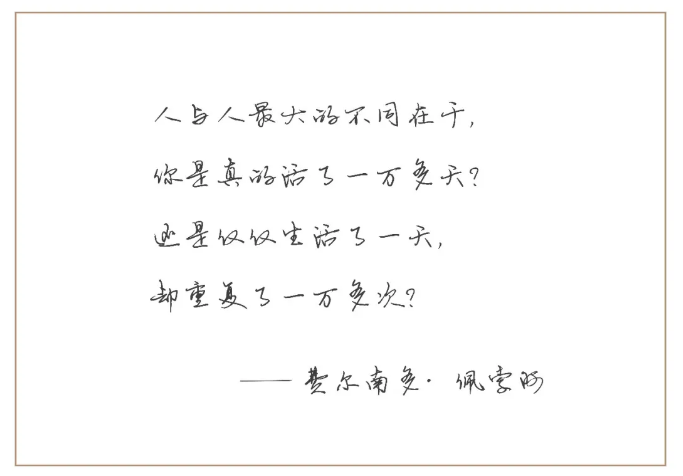 人与人最大的不同在于,
你是真的活了一万多天?
还是仅仅生活了一天,
却重复了一万多次?
——费尔南多·佩索阿